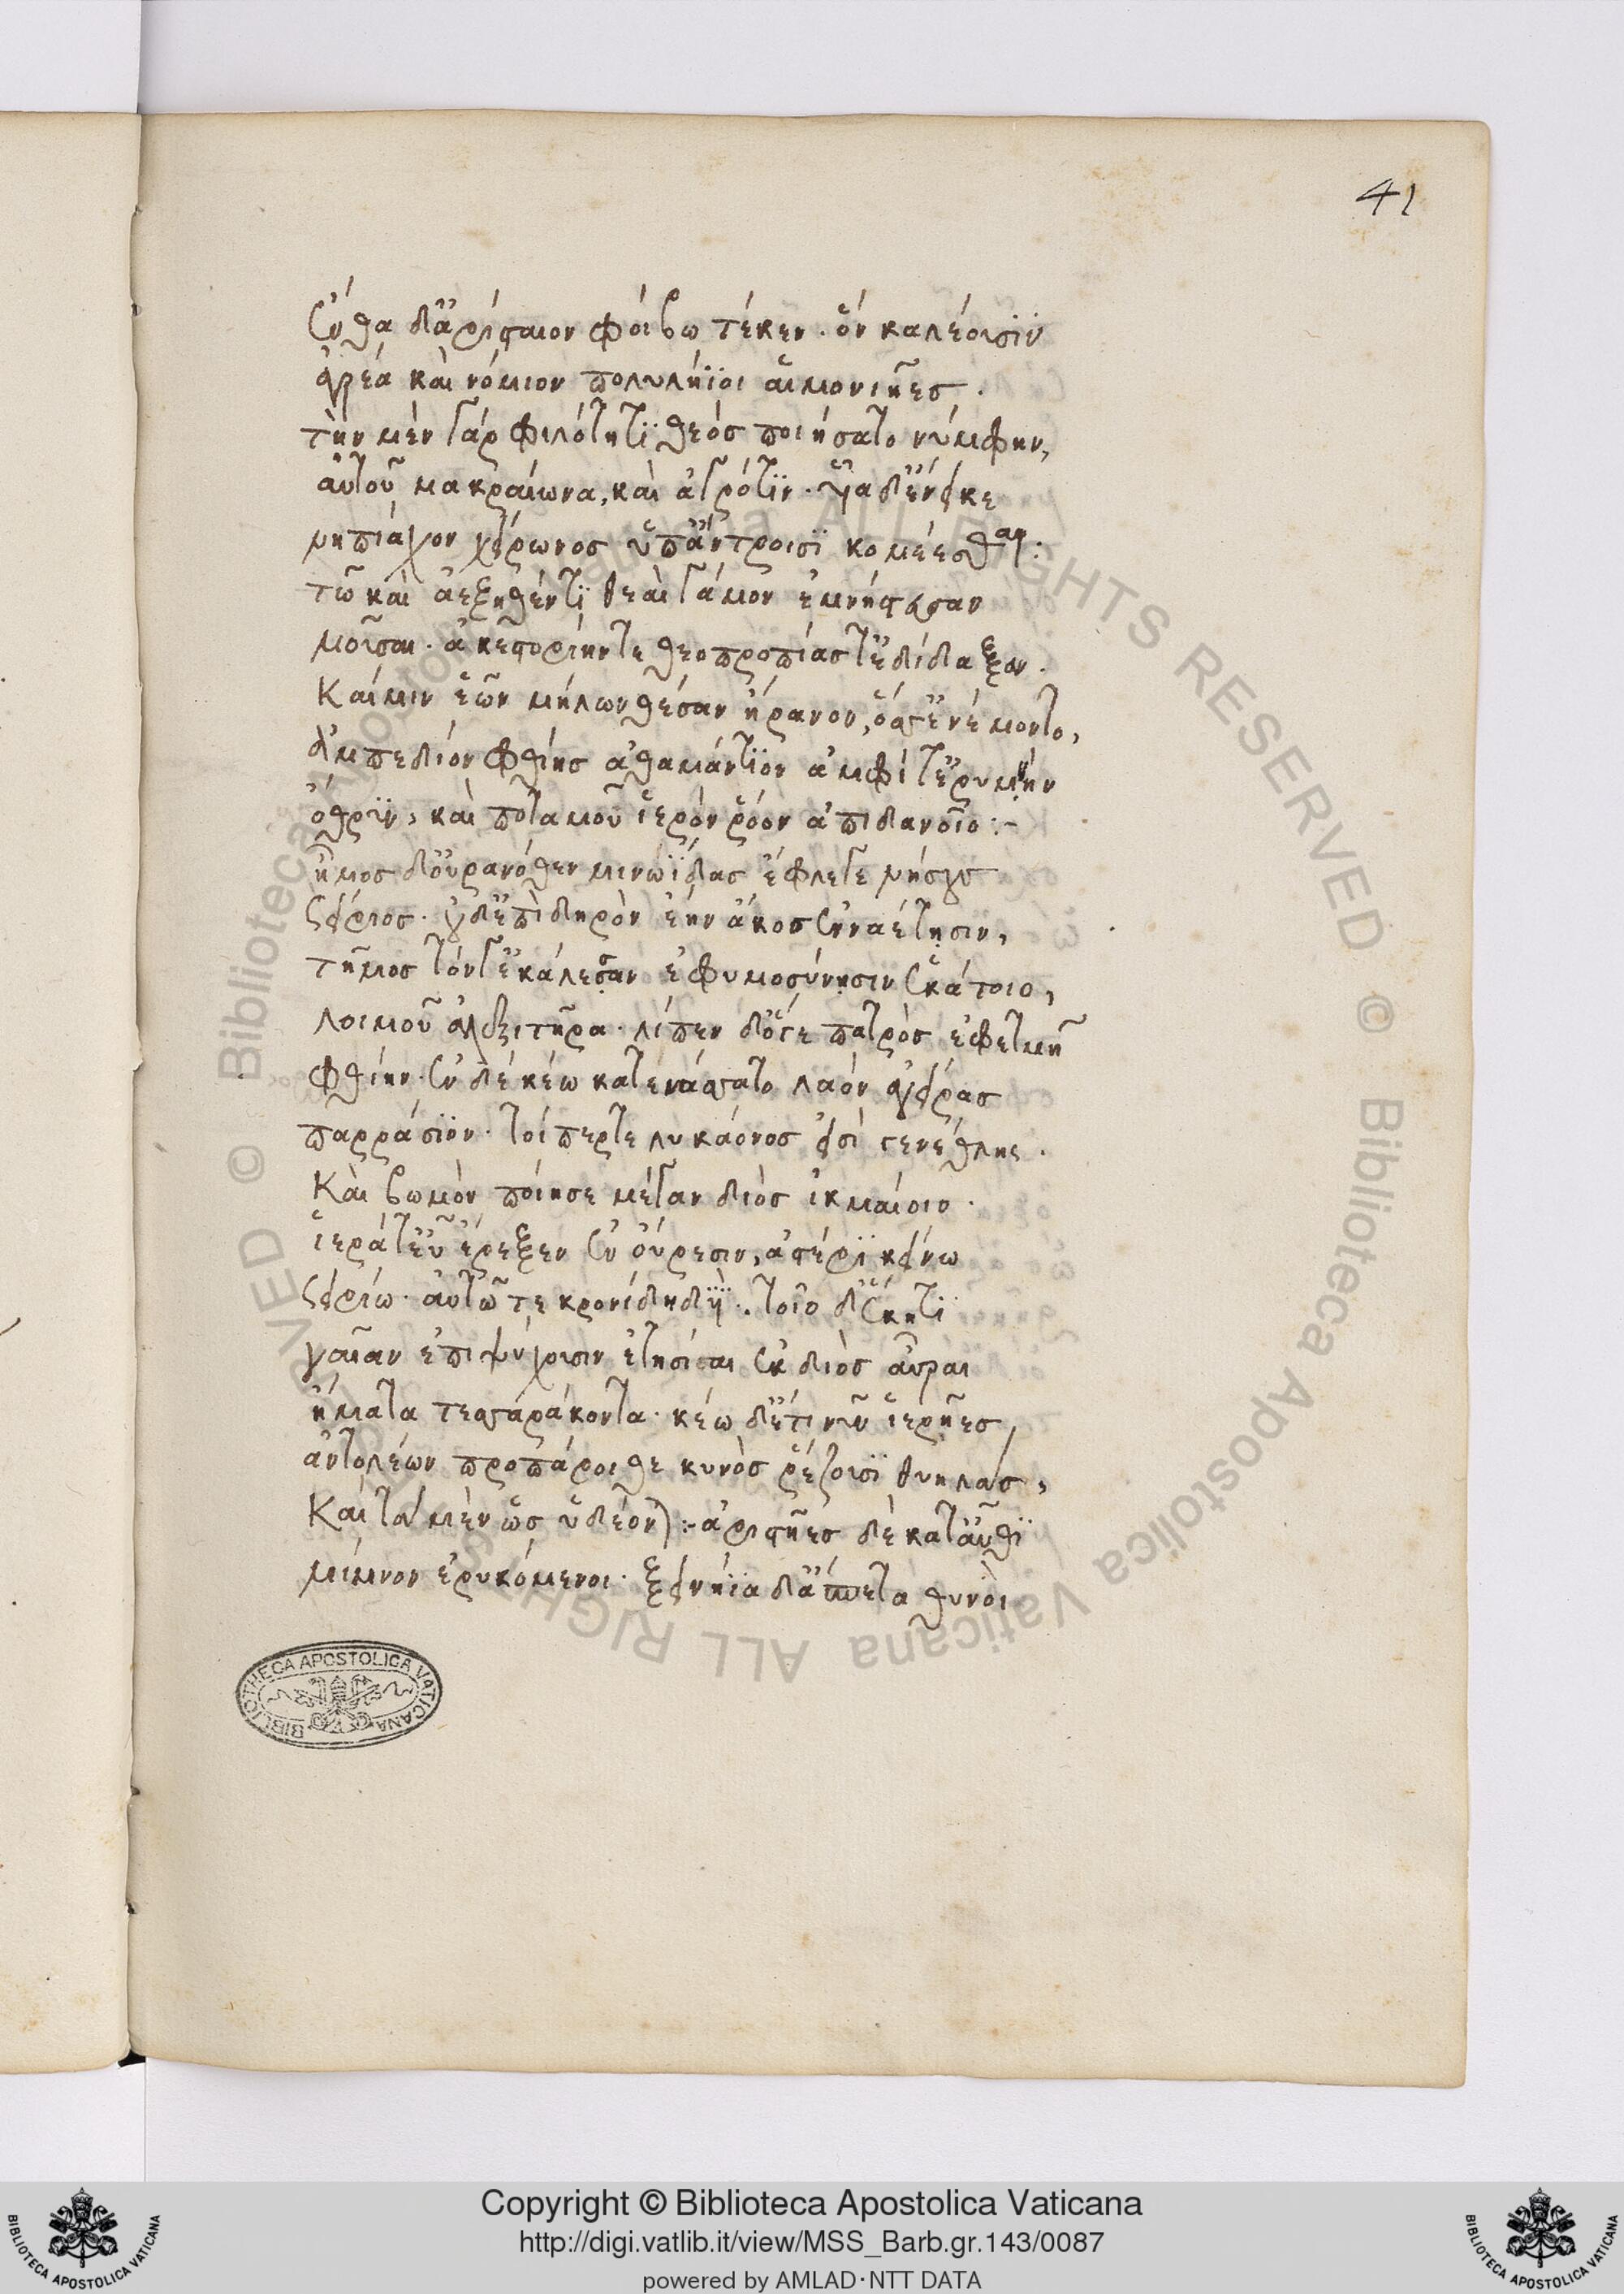 41
ἔνθα δ' ἀρισταῖον φοίβω τέκεν· ὃν καλέουσιν
ἀγρέα καὶ νόμιον πολυλήϊοι αἱμονιῆες.
τὴν μὲν γὰρ φιλότητι θεὸς ποιήσατο νύμφην,
αὐτοῦ μακραίωνα, καὶ ἀγρότιν· υἷα δ' ἔνεικε
νηπίαχον χείρωνος ὑπ' ἄντροισι κομέεσθαι:
τῶ καὶ ἀεξηθέντι θεαὶ γάμον ἐμνήστευσαν
μοῦσαι· ἀκεστορίην τε θεοπροπίας τ' ἐδίδαξαν.
Καί μιν ἑῶν μήλων θέσαν ἤρανον, ὅσσ' ἐνέμοντο,
ἀμπεδίον φθίης ἀθαμάντιον ἀμφί τ' ἐρυμνὴν
ὄθρυν, καὶ ποταμοῦ ἱερὸν ῥόον ἀπιδανοῖο:-
ἦμος δ' οὐρανόθεν μινωΐδας ἔφλεγε νήσους
σείριος· οὐδ' ἐπὶ δηρὸν ἔην ἄκος ἐνναέτῃσιν,
τῆμος τόν γ' ἐκάλεσαν ἐφημοσύνῃσιν ἑκάτοιο,
λοιμοῦ ἀλεξητῆρα· λίπεν δ' ὅγε πατρὸς ἐφετμῆ
φθίην· ἐν δὲ κέω κατενάσσατο λαὸν ἀγείρας
παρράσιον· τοί πέρ τε λυκάονος εἰσὶ γενέθλης.
Καὶ βωμὸν ποίησε μέγαν διὸς ἰκμαίοιο·
ἱερά τ' εὖ ἔρεξεν ἐν οὔρεσιν, ἀστέρι κείνω
σειρίω· αὐτῶ τε κρονίδῃ διΐ. τοῖο δ' ἕκητι
γαῖαν ἐπιψύχουσιν ἐτησίαι ἐκ διὸς αὖραι
ἤματα τεσσαράκοντα· κέω δ' ἔτι νῦν ἱερῆες
ἀντολέων προπάροιθε κυνὸς ῥέζουσι θυηλάς,
Καὶ τὰ μὲν ὣς ὑδέονται:- ἀριστῆες δὲ καταῦθι
μίμνον ἐρυκόμενοι· ξεινήϊα δ' ἄσπετα θυνοὶ
BIBLIOTHECA APOSTOLICA VATICANA
© Biblioteca Apostolica Vaticana ALL RIGHTS RESERVED © Biblioteca Apostolica Vaticana ALL RIGHTS RESERVED
Copyright © Biblioteca Apostolica Vaticana
http://digi.vatlib.it/view/MSS_Barb.gr.143/0087
powered by AMLAD·NTT DATA
BIBLIOTECA APOSTOLICA VATICANA
BIBLIOTECA APOSTOLICA VATICANA